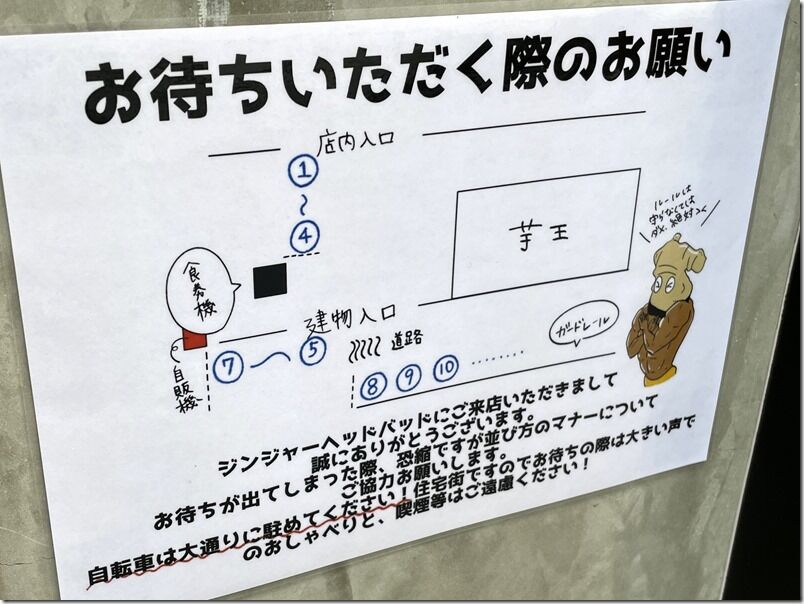 お待ちいただく際のお願い
店内入口
①
~
④
食券機
芋王
ルールは
守らなくては
ダメ、絶対ンく
建物入口
自販機
⑦~⑤
道路
ガードレール
⑧ ⑨ ⑩ ........
ジンジャーヘッドバッドにご来店いただきまして
誠にありがとうございます。
お待ちが出てしまった際、恐縮ですが並び方のマナーについて
ご協力お願いします。
自転車は大通りに駐めてください!住宅街ですのでお待ちの際は大きい声で
のおしゃべりと、喫煙等はご遠慮ください!